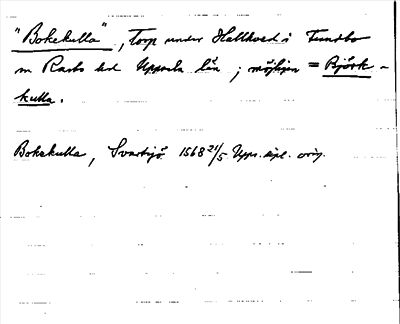 "Bokekulla", Torp under Hallkved i Funbo
sn Rasbo hd Uppsala län ; möjligen = Björk-
kulla.
Bokekulla, Svartsjö 1568 21/5 Upps. dipl. orig.